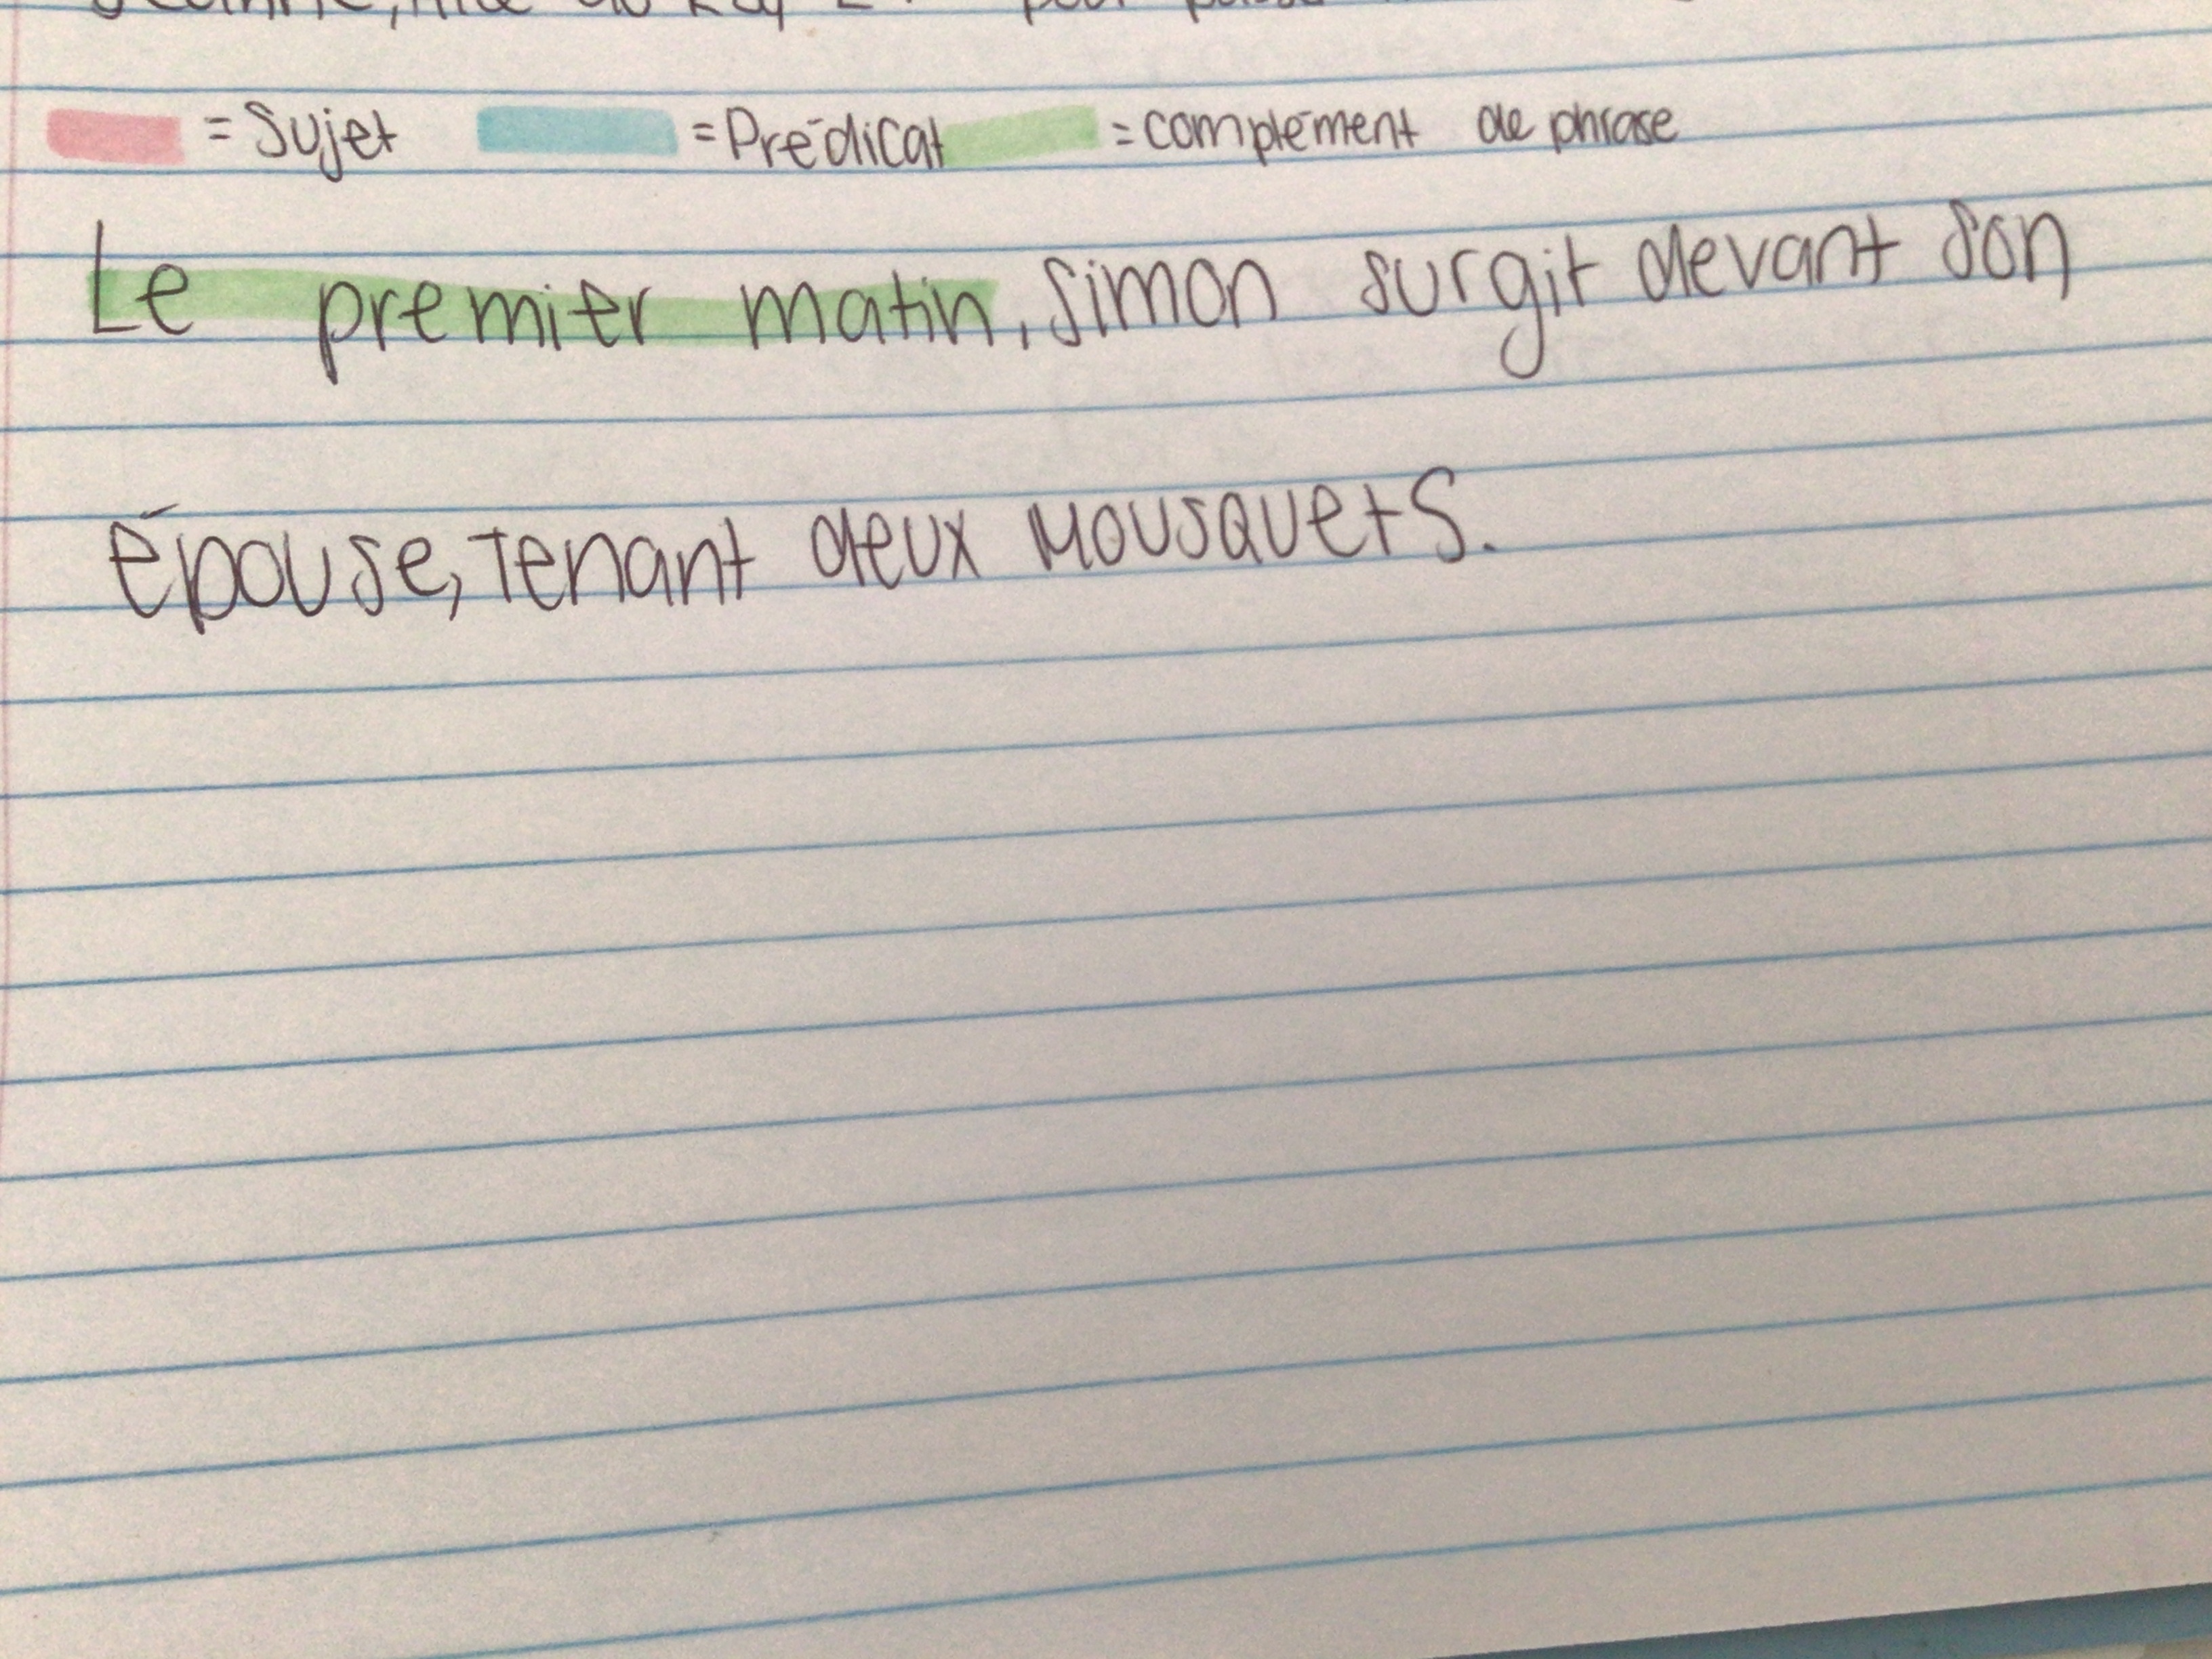 = Sujet = Prédicat = complément de phrase
Le premier matin, Simon surgit devant son
épouse, Tenant deux Mousquets.